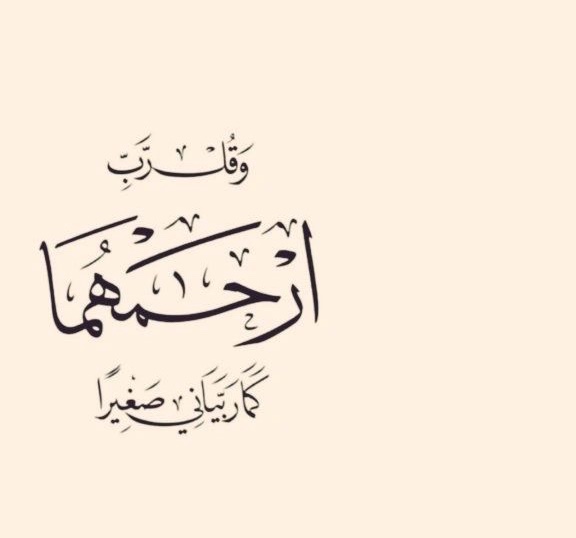 وَقُل رَّبِّ
ارْحَمْهُمَا
كَمَا رَبَّيَانِي صَغِيرًا